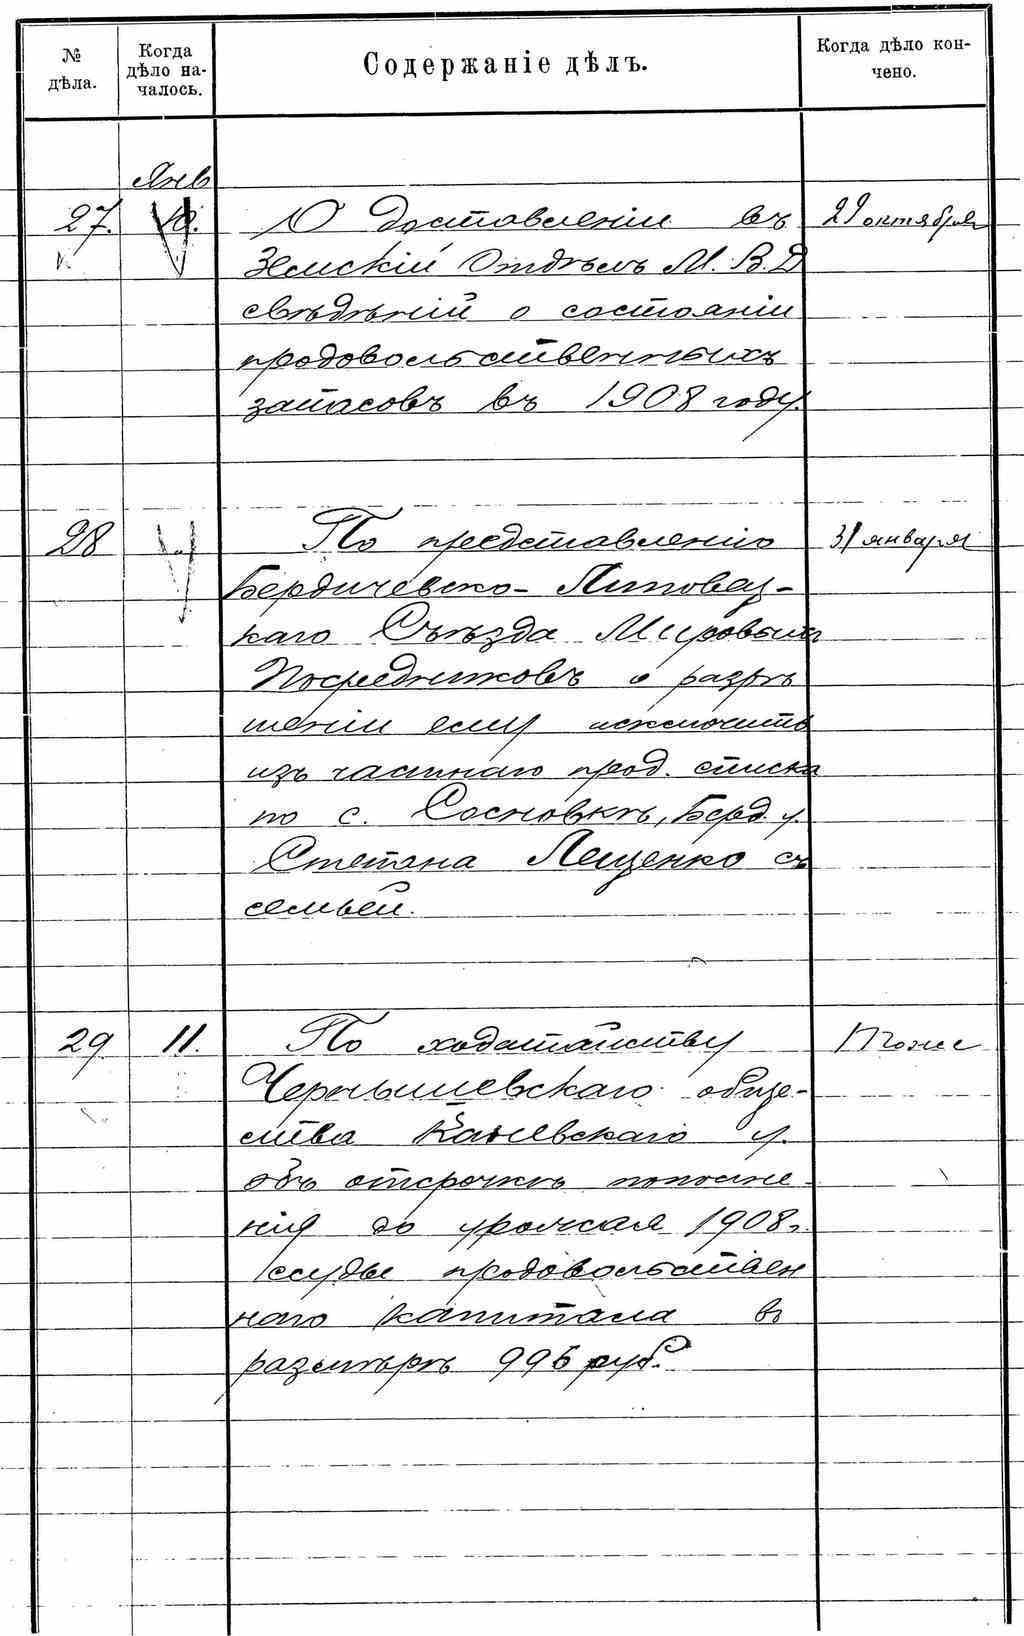 № дѣла.
Когда дѣло началось.
Содержаніе дѣлъ.
Когда дѣло кончено.
Янв
27. 10. О доставленіи въ 29 октября
Земскій Отдѣлъ М. В. Д
свѣдѣній о состояніи
продовольственныхъ
запасовъ въ 1908 году.
28 По представленію 31 января
Бердичевско-Липовец-
каго Съѣзда Мировыхъ
Посредниковъ о разрѣ
шеніи ему исключить
изъ частнаго прод. списка
по с. Сосновкѣ, Берд. у.
Степана Лещенко съ
семьей.
29 11. По ходатайству
Чернышевскаго обще-
ства Каневскаго у.
объ отсрочкѣ пополне-
нія до урожая 1908 г.
ссуды продовольствен
наго капитала въ
размѣрѣ 996 руб.